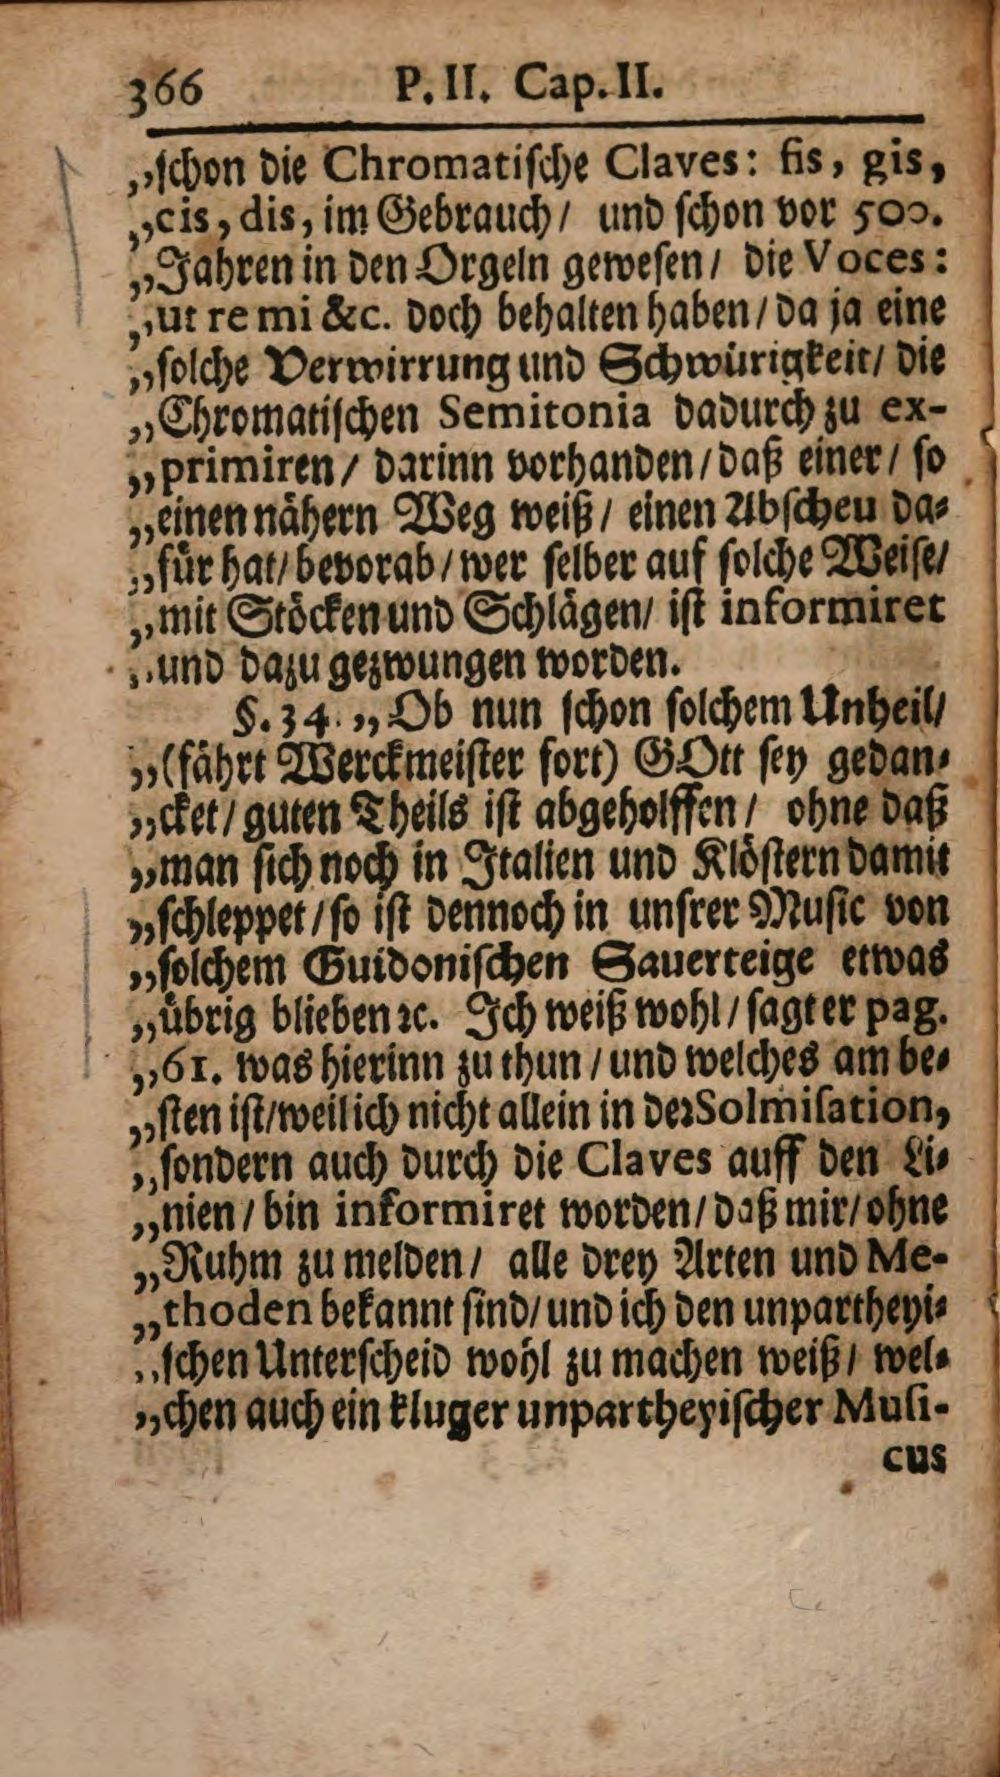 366 P. II. Cap. II.
„ſchon die Chromatiſche Claves: fis, gis,
„cis, dis, im Gebrauch/ und ſchon vor 500.
„Jahren in den Orgeln geweſen/ die Voces:
„ut re mi &c. doch behalten haben/ da ja eine
„ſolche Verwirrung und Schwürigkeit/ die
„Chromatiſchen Semitonia dadurch zu ex-
„primiren/ darinn vorhanden/ daß einer/ ſo
„einen nähern Weg weiß/ einen Abſcheu da-
„für hat/ bevorab/ wer ſelber auf ſolche Weiſe/
„mit Stöcken und Schlägen/ iſt informiret
„und dazu gezwungen worden.
§. 34. „Ob nun ſchon ſolchem Unheil/
„(fährt Werckmeiſter fort) GOtt ſey gedan-
„cket/ guten Theils iſt abgeholffen/ ohne daß
„man ſich noch in Italien und Klöſtern damit
„ſchleppet/ ſo iſt dennoch in unſrer Muſic von
„ſolchem Guidoniſchen Sauerteige etwas
„übrig blieben ꝛc. Ich weiß wohl/ ſagt er pag.
„61. was hierinn zu thun/ und welches am be-
„ſten iſt/ weil ich nicht allein in der Solmiſation,
„ſondern auch durch die Claves auff den Li-
„nien/ bin informiret worden/ daß mir/ ohne
„Ruhm zu melden/ alle drey Arten und Me-
„thoden bekannt ſind/ und ich den unpartheyi-
„ſchen Unterſcheid wohl zu machen weiß/ wel-
„chen auch ein kluger unpartheyiſcher Muſi-
cus